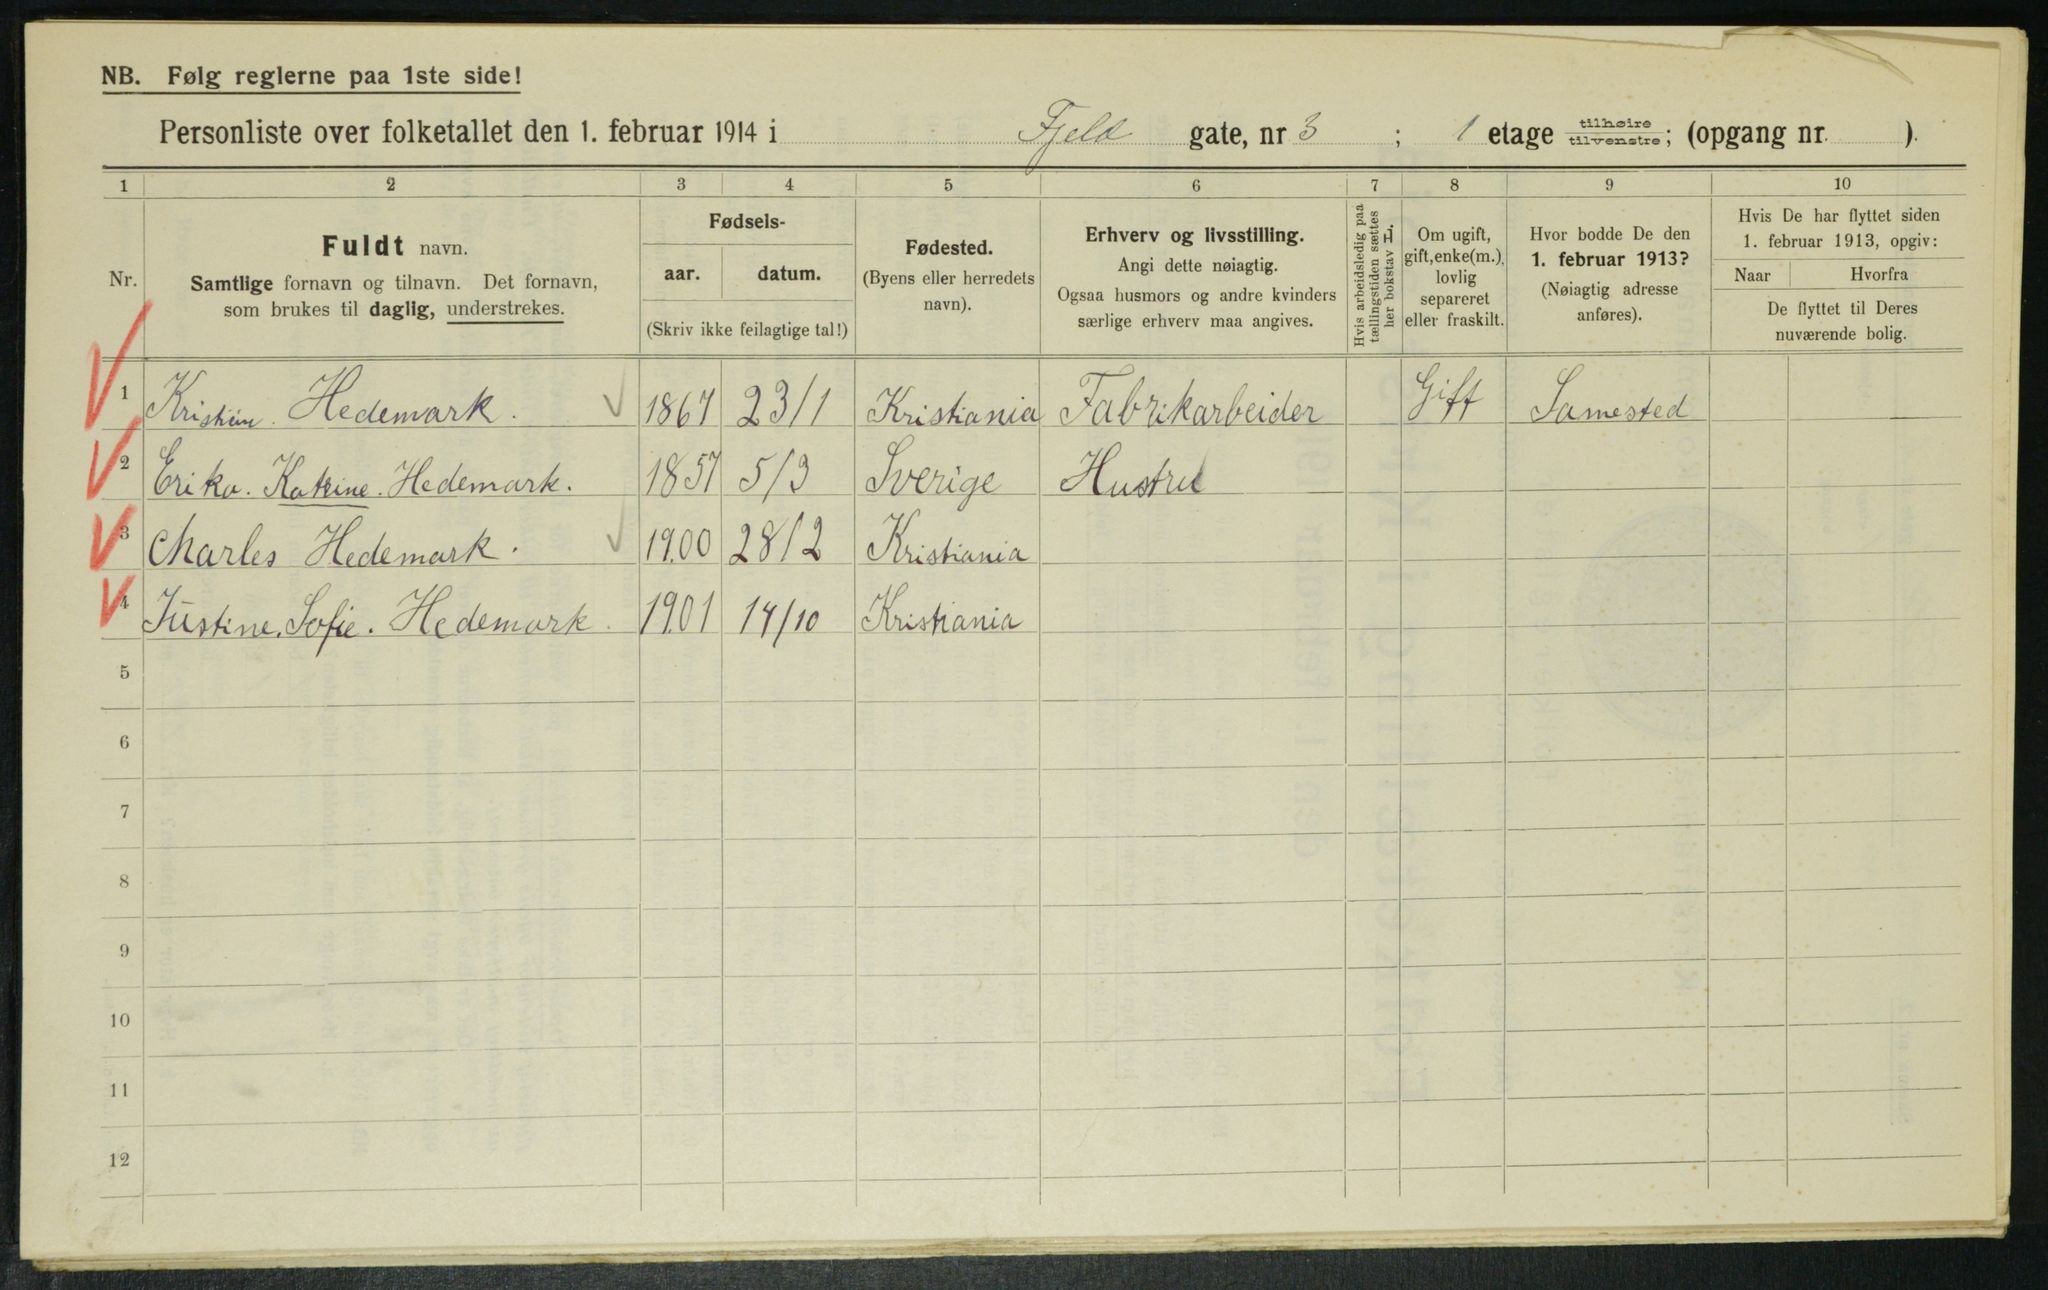 NB. Følg reglerne paa 1ste side!
Personliste over folketallet den 1. februar 1914 i Fjeld gate, nr 3 ; 1 etage tilhøire tilvenstre; (opgang nr. ).
1 2 3 4 5 6 7 8 9 10
Nr.
Fuldt navn.
Samtlige fornavn og tilnavn. Det fornavn,
som brukes til daglig, understrekes.
Fødsels-
aar. datum.
(Skriv ikke feilagtige tal!)
Fødested.
(Byens eller herredets
navn).
Erhverv og livsstilling.
Angi dette nøiagtig.
Ogsaa husmors og andre kvinders
særlige erhverv maa angives.
Hvis arbeidsledig paa
tællingstiden sættes
her bokstav L.
Om ugift,
gift, enke(m.),
lovlig
separeret
eller fraskilt.
Hvor bodde De den
1. februar 1913?
(Nøiagtig adresse
anføres).
Hvis De har flyttet siden
1. februar 1913, opgiv:
Naar Hvorfra
De flyttet til Deres
nuværende bolig.
1 Kristian Hedemark. 1867 23/1 Kristiania Fabrikarbeider Gift Samested
2 Erika. Katrine. Hedemark. 1857 5/3 Sverige Hustru
3 Charles Hedemark. 1900 28/2 Kristiania
4 Justine. Sofie. Hedemark. 1901 14/10 Kristiania
5
6
7
8
9
10
11
12